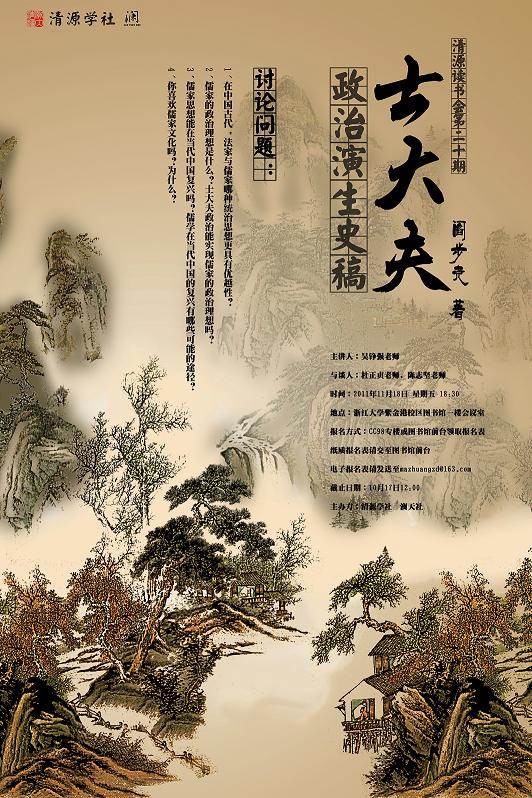 清源学社 澜
清源读书会第二十期
士大夫
政治演生史稿
阎步克 著
讨论问题：
1、在中国古代，法家与儒家哪种统治思想更具有优越性？
2、儒家的政治理想是什么？士大夫政治能实现儒家的政治理想吗？
3、儒家思想能在当代中国复兴吗？儒学在当代中国的复兴有哪些可能的途径？
4、你喜欢儒家文化吗？为什么？
主讲人：吴铮强老师
与谈人：杜正贞老师，陈志坚老师
时间：2011年11月18日 星期五 18:30
地点：浙江大学紫金港校区图书馆一楼会议室
报名方式：CC98专楼或图书馆前台领取报名表
纸质报名表请交至图书馆前台
电子报名表请发送至mazhuangzd@163.com
截止日期：10月17日12:00
主办方：清源学社 澜天社